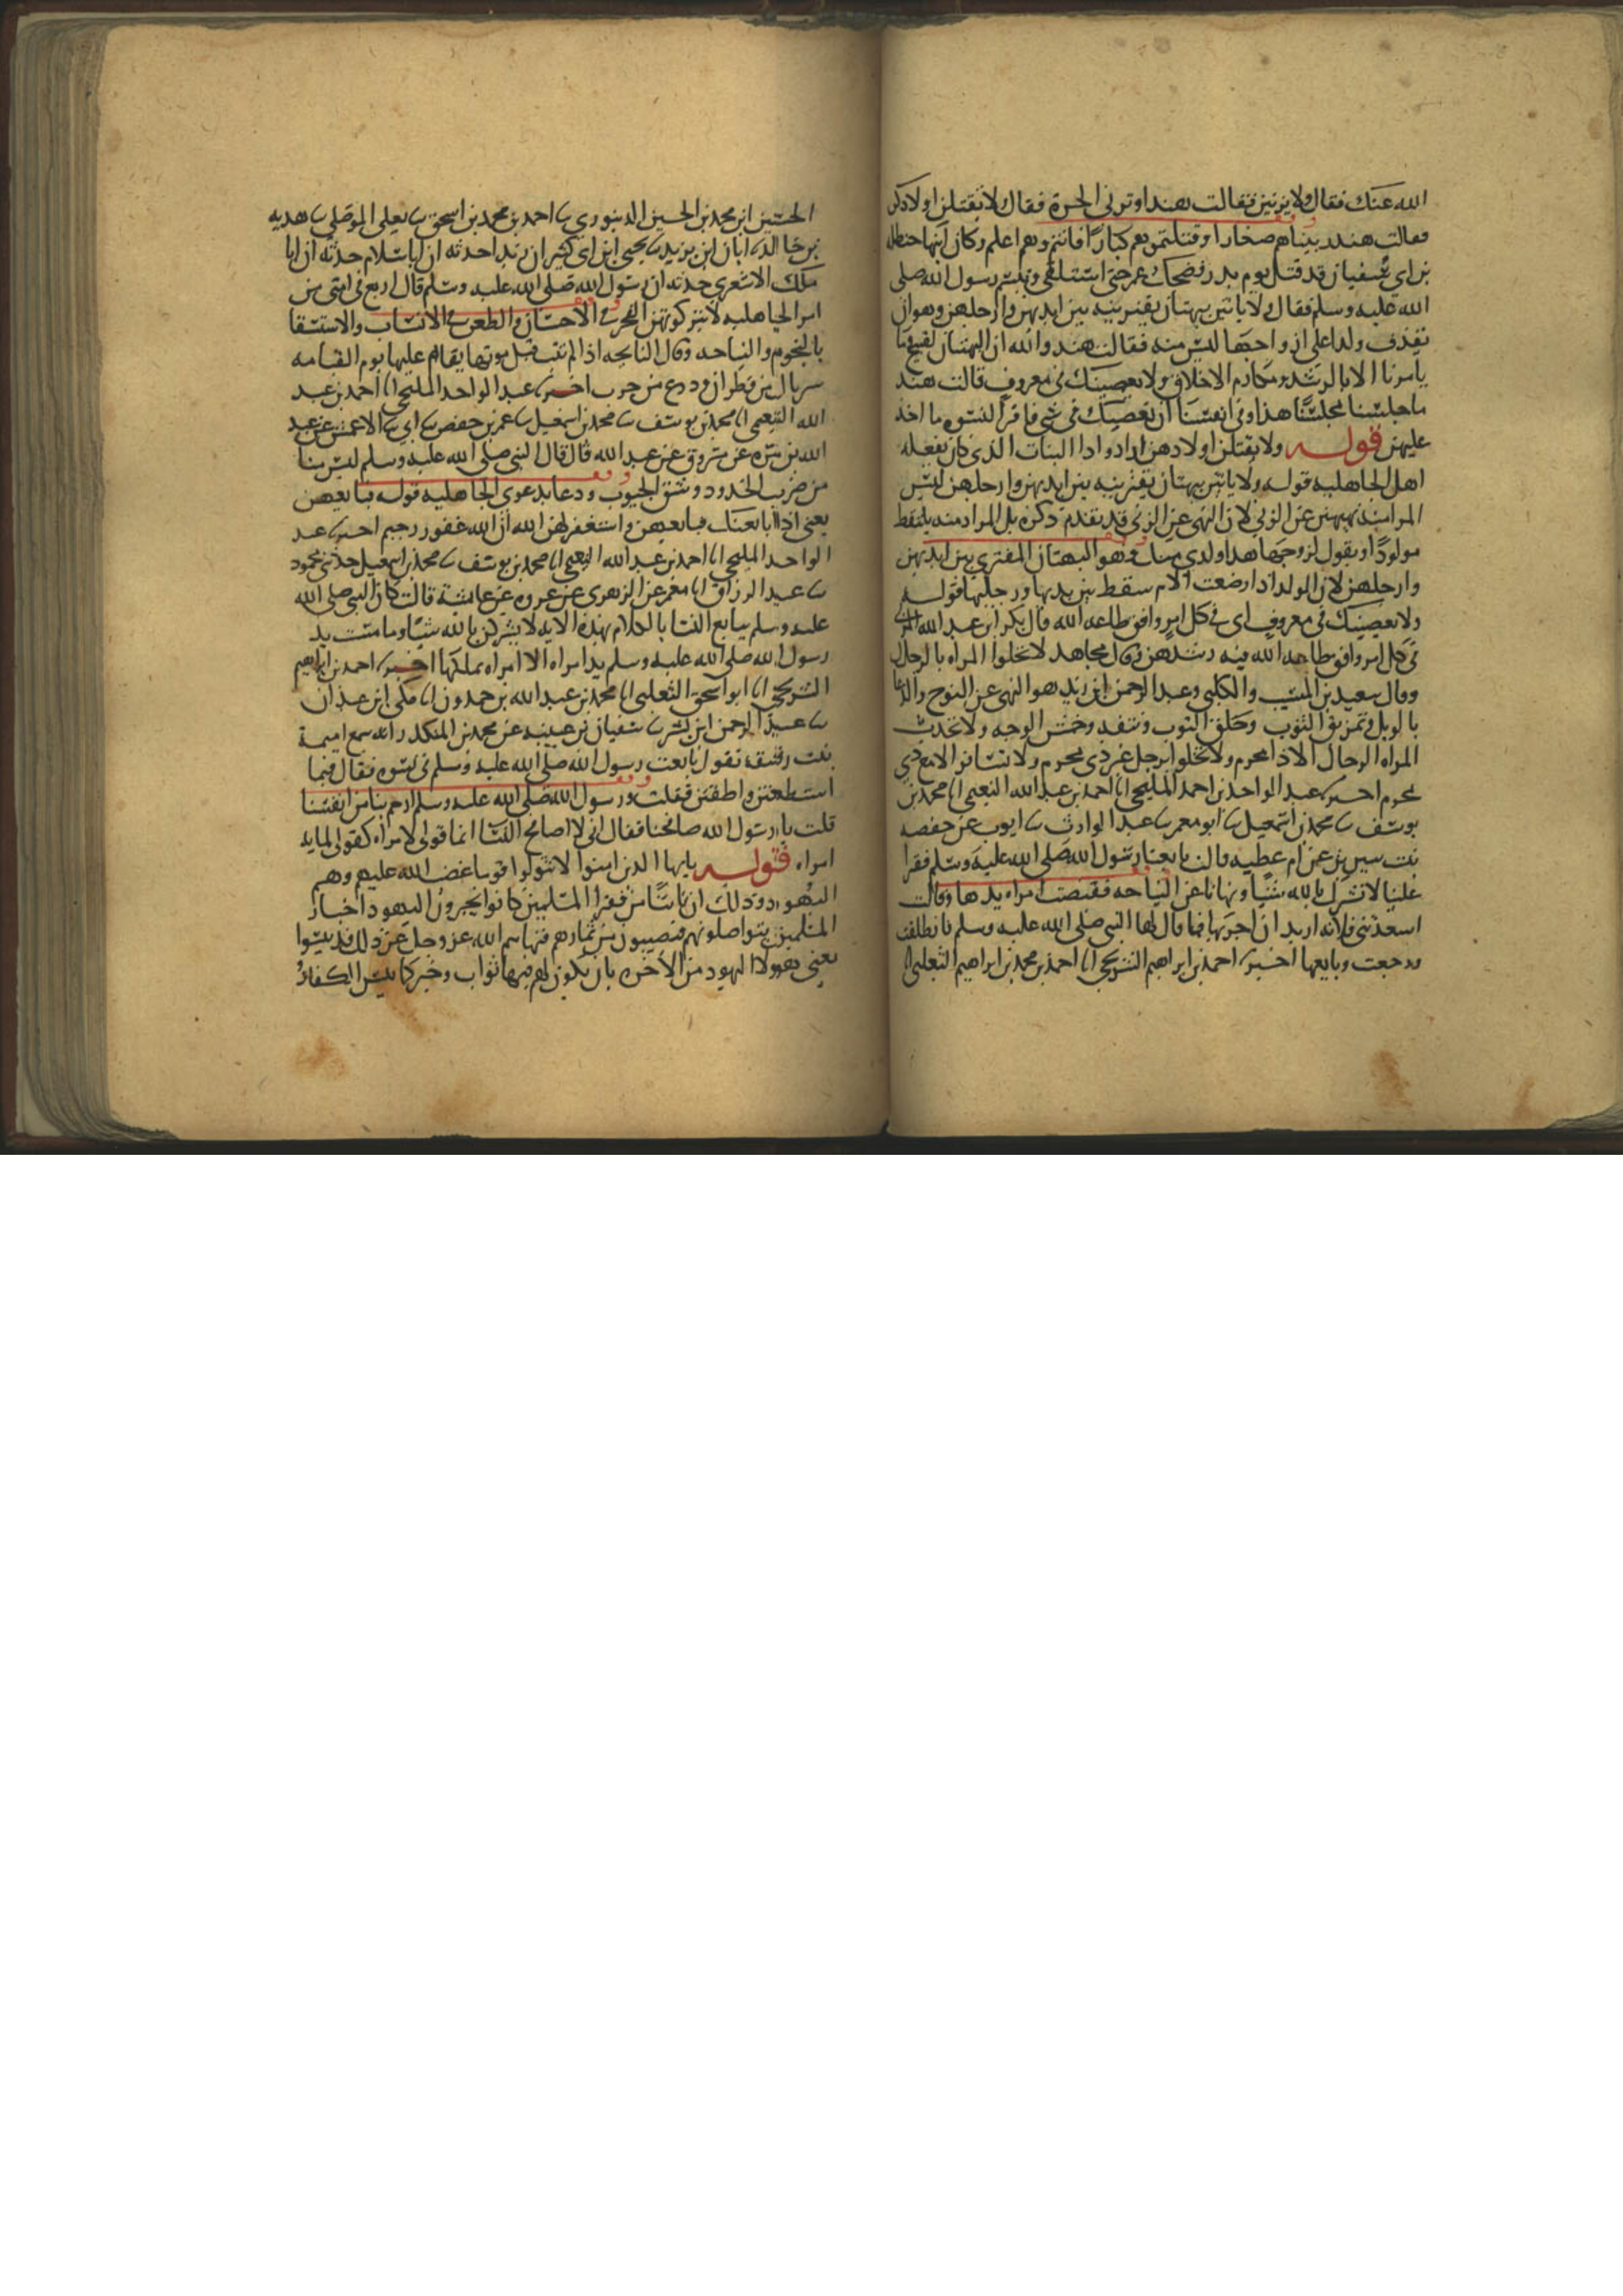 الله عنك فقال ولا يزنين فقالت هند اوتزني الحرة فقال ولا يقتلن اولادهن
فقالت هند ربيناهم صغارا وقتلتموهم كبارا فانتم وهم اعلم وكان ابنها حنظله
بن ابي سفيان قد قتل يوم بدر فضحك عمر حتى استلقى وتبسم رسول الله صلى
الله عليه وسلم فقال ولا ياتين ببهتان يفترينه بين ايديهن وارجلهن وهو ان
تقذف ولدا على زوجها ليس منه فقالت هند والله ان البهتان لقبيح وما
يامرنا الا بالرشد ومكارم الاخلاق ولا يعصينك في معروف قالت هند
ما جلسنا مجلسنا هذا وفي انفسنا ان نعصيك في شي فاقر النسوه ما اخذ
عليهن قوله ولا يقتلن اولادهن اراد واد البنات الذي كان يفعله
اهل الجاهليه قوله ولا ياتين ببهتان يفترينه بين ايديهن وارجلهن ليس
المراد منه نهيهن عن الزنى لان النهي عن الزنى قد تقدم ذكره بل المراد منه يلتقط
مولودا وتقول لزوجها هذا ولدي منك فهو البهتان المفترى بين ايديهن
وارجلهن لان الولد اذا وضعته الام سقط بين يديها ورجليها قوله
ولا يعصينك في معروف اي في كل امر وافق طاعه الله قال بكر ابن عبد الله المزني
في كل امر وافق طاعه الله فيه رشدهن وقال مجاهد لا تخلوا المراه بالرجال
وقال سعيد بن المسيب والكلبي وعبد الرحمن ابن زيد هو النهي عن النوح والدعا
بالويل وتمزيق الثوب وحلق ونتفه وخمش الوجه ولا تحدث
المراه الرجال الا ذا محرم ولا تخلوا برجل غير ذي محرم ولا تسافر الا مع ذي
محرم اخبرنا عبد الواحد بن احمد المليحي انا احمد بن عبد الله النعيمي انا محمد بن
يوسف نا محمد بن اسمعيل نا ابو معمر نا عبد الوارث نا ايوب عن حفصه
بنت سيرين عن ام عطيه قالت بايعنا رسول الله صلى الله عليه وسلم فقرا
علينا لا تشركن بالله شيئا ونهانا عن النياحه فقبضت امراه يدها وقالت
اسعدتني فلانه اريد ان اجزيها فما قال لها النبي صلى الله عليه وسلم فانطلقت
ورجعت وبايعها اخبرنا احمد بن ابراهيم الشريحي انا احمد بن محمد بن ابراهيم الثعلبي انا
الحسين ابن محمد بن الحسين الدينوري نا احمد بن محمد بن اسحق نا يعلى الموصلي نا هدبه
بن خالد نا ابان ابن يزيد نا يحيى ابن ابي كثير ان زيدا حدثه ان ابا سلام حدثه ان ابا
ملك الاشعري حدثه ان رسول الله صلى الله عليه وسلم قال اربع في امتي من
امر الجاهليه لا يتركونهن الفخر في الاحساب والطعن في الانساب والاستسقا
بالنجوم والنياحه وقال النايحه اذا لم تتب قبل موتها يقام عليها يوم القيامه
سربال من قطران ودرع من جرب اخبرنا عبد الواحد المليحي انا احمد بن عبد
الله النعيمي انا محمد بن يوسف نا محمد بن اسمعيل نا عمر بن حفص نا ابي نا الاعمش عن عبد
الله بن مره عن مسروق عن عبد الله قال قال النبي صلى الله عليه وسلم ليس منا
من ضرب الخدود وشق الجيوب ودعا بدعوى الجاهليه قوله فبايعهن
يعني اذا بايعنك فبايعهن واستغفر لهن الله ان الله غفور رحيم اخبرنا عبد
الواحد المليحي انا احمد بن عبد الله النعيمي انا محمد بن يوسف نا محمد بن اسمعيل حدثني محمود
نا عبد الرزاق انا معمر عن الزهري عن عروه عن عائشة قالت كان النبي صلى الله
عليه وسلم يبايع النسا بالكلام بهذه الايه لا يشركن بالله شيئا وما مست يد
رسول الله صلى الله عليه وسلم يد امراه الا امراه يملكها اخبرنا احمد بن ابراهيم
الشريحي انا ابو اسحق الثعلبي انا محمد بن عبد الله بن حمدون انا مكي ابن عبدان
نا عبد الرحمن ابن بشر نا سفيان بن عيينه عن محمد بن المنكدر انه سمع اميمة
بنت رقيقه تقول بايعت رسول الله صلى الله عليه وسلم في نسوه فقال فيما
استطعتن واطقتن فقلت ورسول الله صلى الله عليه وسلم ارحم بنا من انفسنا
قلت يا رسول الله صافحنا فقال اني لا اصافح النسا انما قولي لامراه كقولي لمايه
امراه قوله يايها الذين امنوا لا تتولوا قوما غضب الله عليهم وهم
اليهود وذلك ان ناسا من فقرا المسلمين كانوا يخبرون اليهود اخبار
المسلمين يتواصلونهم فيصيبون من ثمارهم فنهاهم الله عز وجل عن ذلك قد يئسوا
يعني هوولا اليهود من الاخره بان يكون لهم فيها ثواب وخير كما يئس الكفار